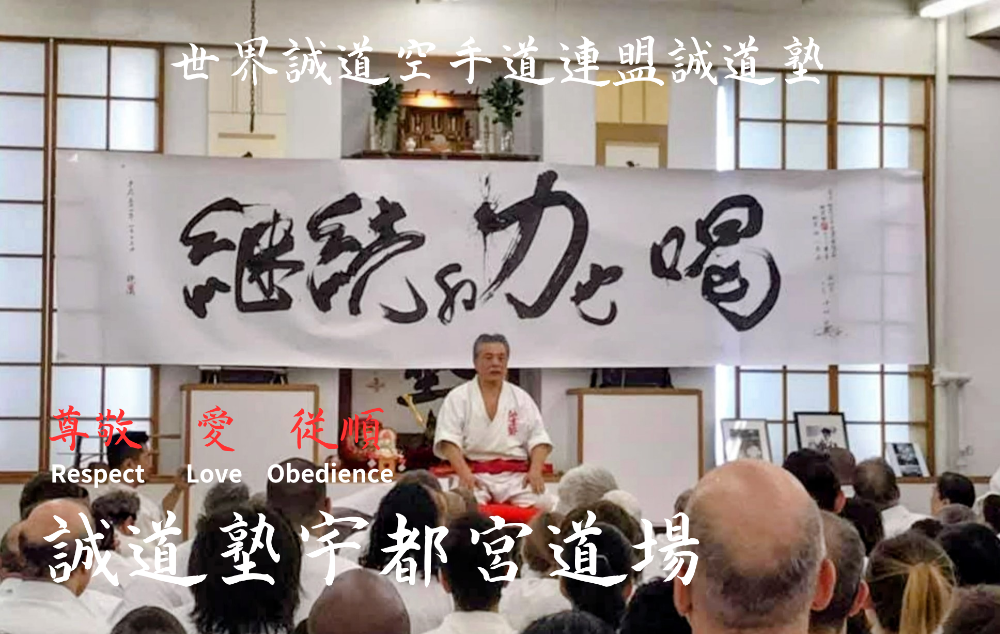 世界誠道空手道連盟誠道塾
継続は力也 喝
尊敬 愛 従順
Respect Love Obedience
誠道塾宇都宮道場